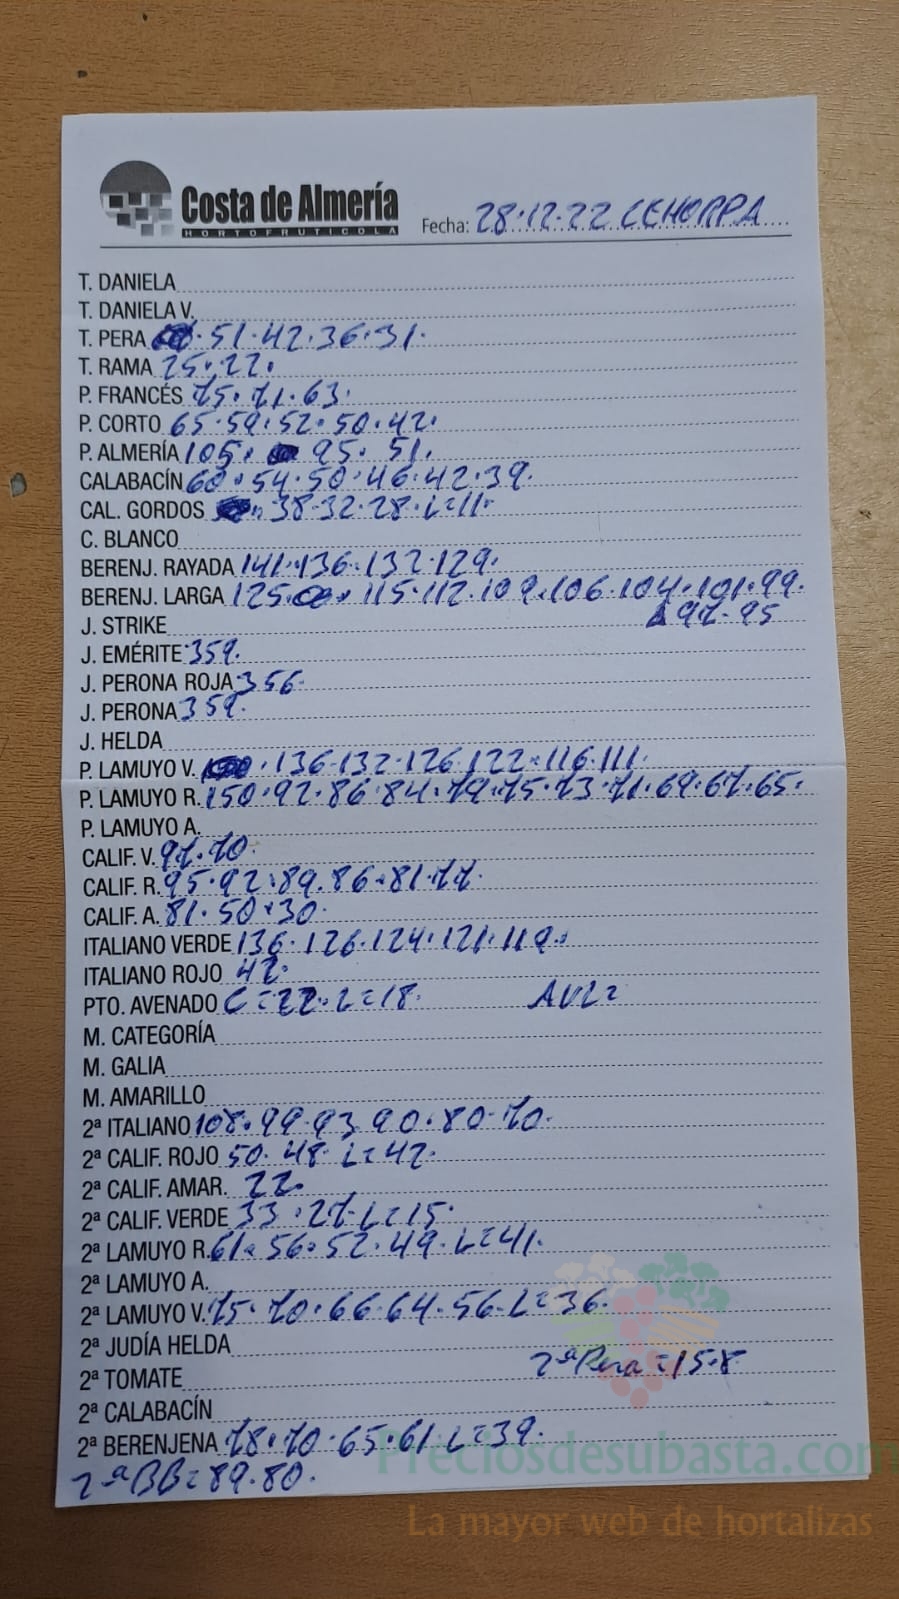 Costa de Almería
HORTOFRUTICOLA
Fecha: 28.12.22 CEHORPA
T. DANIELA
T. DANIELA V.
T. PERA 51.42.36.31.
T. RAMA 25.22.
P. FRANCÉS 75.71.63.
P. CORTO 65.59.52.50.42.
P. ALMERÍA 105. 95. 51.
CALABACÍN 60.54.50.46.42.39.
CAL. GORDOS 38.32.28.L=11.
C. BLANCO
BERENJ. RAYADA 141.136.132.129.
BERENJ. LARGA 125. 115.112.109.106.104.101.99.
97.95
J. STRIKE
J. EMÉRITE 359.
J. PERONA ROJA 356.
J. PERONA 359.
J. HELDA
P. LAMUYO V. 136.132.126.122.116.111.
P. LAMUYO R. 150.92.86.84.79.75.73.71.69.67.65.
P. LAMUYO A.
CALIF. V. 97.70.
CALIF. R. 95.92.89.86.81.77.
CALIF. A. 81.50.30.
ITALIANO VERDE 136.126.124.121.119.
ITALIANO ROJO 42.
PTO. AVENADO C=22.L=18.
M. CATEGORÍA
M. GALIA
M. AMARILLO
2ª ITALIANO 108.99.93.90.80.70.
2ª CALIF. ROJO 50.48.L=42.
2ª CALIF. AMAR. 22.
2ª CALIF. VERDE 33.27.L=15.
2ª LAMUYO R. 61.56.52.49.L=41.
2ª LAMUYO A.
2ª LAMUYO V. 75.70.66.64.56.L=36.
2ª JUDÍA HELDA
2ª Pera=15.8
2ª TOMATE
2ª CALABACÍN
2ª BERENJENA 78.70.65.61.L=39.
2ª BB=89.80.
Preciosdesubasta.com
La mayor web de hortalizas